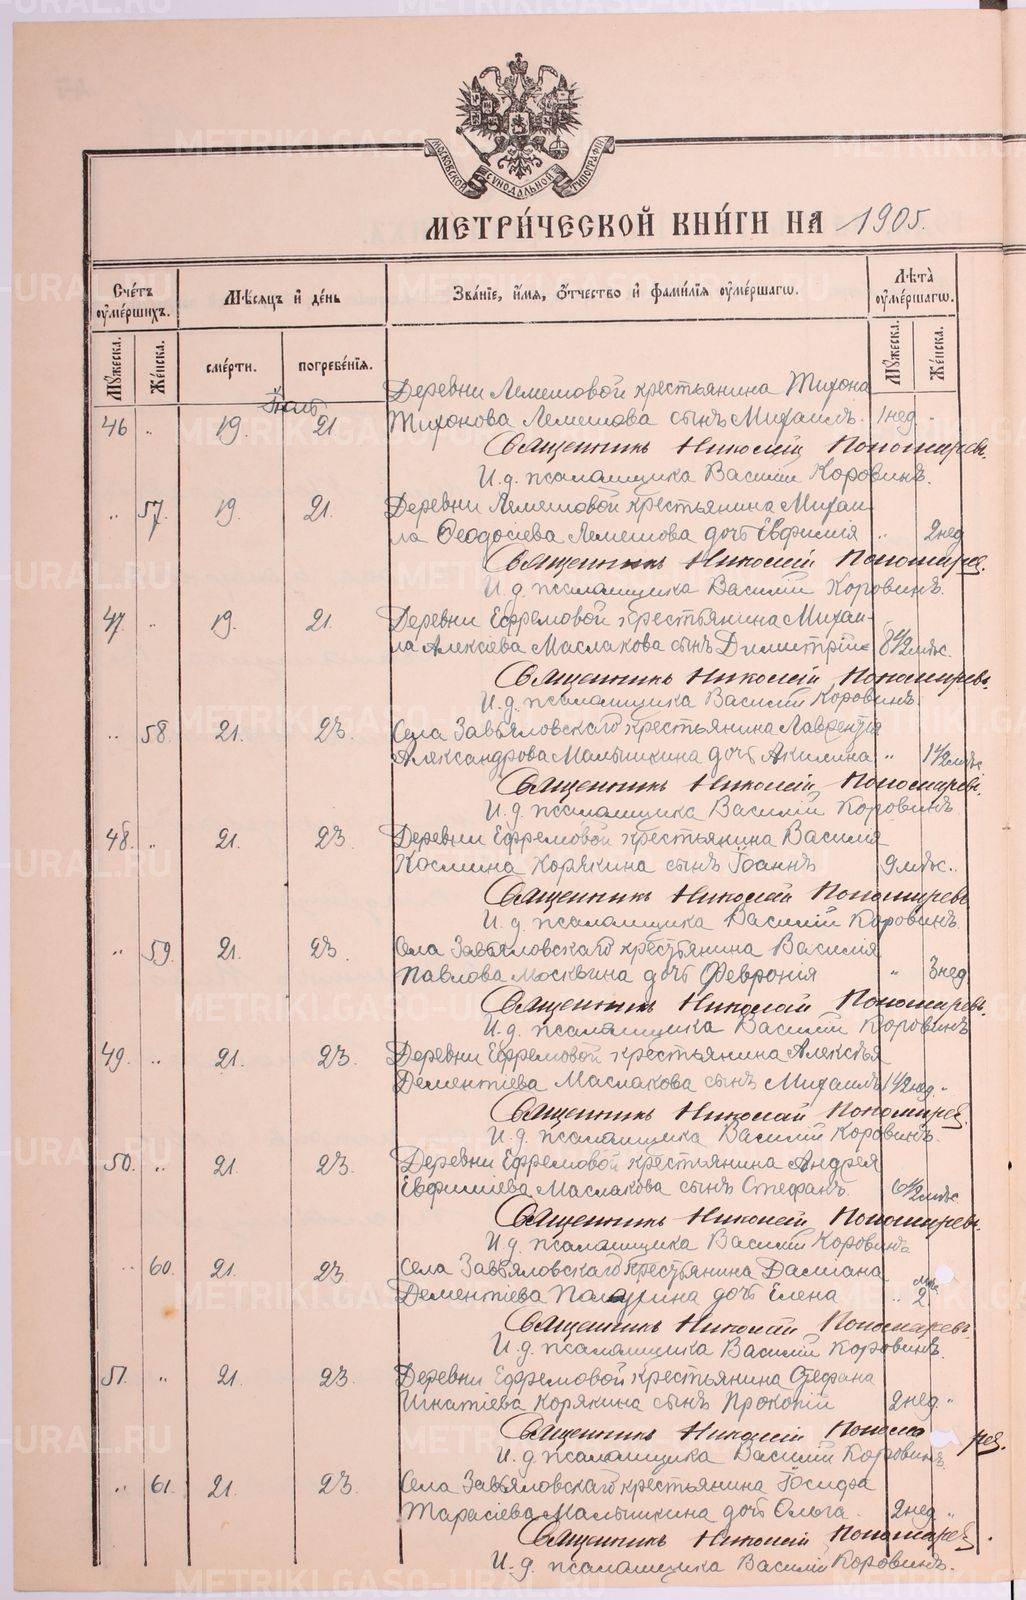 МОСКОВСКОЙ СУНОДАЛЬНОЙ ТИПОГРАФІИ
МЕТРИ́ЧЕСКОЙ КНИ́ГИ НА 1905.
Счéтъ ѹмéршихъ.
Мѣ́сяцъ и҆ дéнь
Звáнїе, и҆́мя, ѻ҆́тчество и҆ фамѝлїя ѹмéршагѡ.
Лѣтà ѹмéршагѡ.
Мꙋ́жеска. Жéнска. смéрти. погребéнїѧ. Мꙋ́жеска. Жéнска.
Іюль
Деревни Лемешовой крестьянина Тихона
46 „ 19. 21 Тихонова Лемешова сынъ Михаилъ. 1 нед „
Священникъ Николай Пономаревъ.
И. д. псаломщика Василій Коровинъ.
„ 57. 19. 21. Деревни Лемешовой крестьянина Михаи-
ла Ѳеодосіева Лемешова дочь Евфимія „ 2 нед
Священникъ Николай Пономарев.
И. д. псаломщика Василій Коровинъ.
47. „ 19. 21. Деревни Ефремовой крестьянина Михаи-
ла Алексіева Маслакова сынъ Димитрій 8 1/2 мѣс.
Священникъ Николай Пономаревъ.
И. д. псаломщика Василій Коровинъ.
„ 58. 21. 23. Села Завьяловскаго крестьянина Лаврентія
Александрова Малышкина дочь Акилина „ 1 1/2 мѣс
Священникъ Николай Пономаревъ
И. д. псаломщика Василій Коровинъ
48. „ 21. 23. Деревни Ефремовой крестьянина Василія
Космина Корякина сынъ Іоаннъ 9 мѣс. „
Священникъ Николай Пономаревъ
И. д. псаломщика Василій Коровинъ.
„ 59. 21. 23. Села Завьяловскаго крестьянина Василія
Павлова Москвина дочь Февронія „ 3 нед
Священникъ Николай Пономаревъ.
И. д. псаломщика Василій Коровинъ
49. „ 21. 23. Деревни Ефремовой крестьянина Алексѣя
Дементіева Маслакова сынъ Михаилъ 1 1/2 нед. „
Священникъ Николай Пономарев
И. д. псаломщика Василій Коровинъ.
50. „ 21. 23. Деревни Ефремовой крестьянина Андрея
Евфиміева Маслакова сынъ Стефанъ. 6 1/2 мѣс
Священникъ Николай Пономаревъ.
И. д. псаломщика Василій Коровинъ
„ 60. 21. 23 Села Завьяловскаго крестьянина Даміана
Дементіева дочь Елена „ 2 мѣс.
Священникъ Николай Пономаревъ.
И. д. псаломщика Василій Коровинъ.
51. „ 21. 23. Деревни Ефремовой крестьянина Стефана
Игнатіева Корякина сынъ Прокопій 2 нед „
Священникъ Николай Пономарев.
И. д. псаломщика Василій Коровинъ.
„ 61. 21. 23. Села Завьяловскаго крестьянина Іосифа
Тарасіева Малышкина дочь Ольга. 2 нед „
Священникъ Николай Пономарев.
И. д. псаломщика Василій Коровинъ.
METRIKI.GASO-URAL.RU